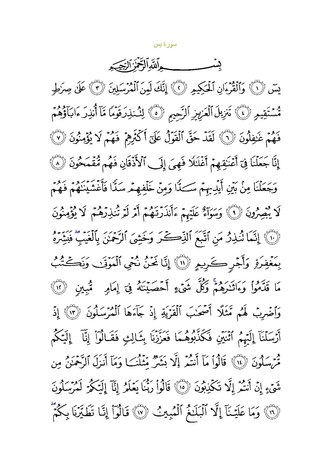 سورة يس
بِسْمِ ٱللَّهِ ٱلرَّحْمَٰنِ ٱلرَّحِيمِ
يسٓ ١ وَٱلْقُرْءَانِ ٱلْحَكِيمِ ٢ إِنَّكَ لَمِنَ ٱلْمُرْسَلِينَ ٣ عَلَىٰ صِرَٰطٍ
مُّسْتَقِيمٍ ٤ تَنزِيلَ ٱلْعَزِيزِ ٱلرَّحِيمِ ٥ لِتُنذِرَ قَوْمًا مَّآ أُنذِرَ ءَابَآؤُهُمْ
فَهُمْ غَٰفِلُونَ ٦ لَقَدْ حَقَّ ٱلْقَوْلُ عَلَىٰٓ أَكْثَرِهِمْ فَهُمْ لَا يُؤْمِنُونَ ٧
إِنَّا جَعَلْنَا فِىٓ أَعْنَٰقِهِمْ أَغْلَٰلًا فَهِىَ إِلَى ٱلْأَذْقَانِ فَهُم مُّقْمَحُونَ ٨
وَجَعَلْنَا مِنۢ بَيْنِ أَيْدِيهِمْ سَدًّا وَمِنْ خَلْفِهِمْ سَدًّا فَأَغْشَيْنَٰهُمْ فَهُمْ
لَا يُبْصِرُونَ ٩ وَسَوَآءٌ عَلَيْهِمْ ءَأَنذَرْتَهُمْ أَمْ لَمْ تُنذِرْهُمْ لَا يُؤْمِنُونَ
١٠ إِنَّمَا تُنذِرُ مَنِ ٱتَّبَعَ ٱلذِّكْرَ وَخَشِىَ ٱلرَّحْمَٰنَ بِٱلْغَيْبِ ۖ فَبَشِّرْهُ
بِمَغْفِرَةٍ وَأَجْرٍ كَرِيمٍ ١١ إِنَّا نَحْنُ نُحْىِ ٱلْمَوْتَىٰ وَنَكْتُبُ
مَا قَدَّمُوا۟ وَءَاثَٰرَهُمْ ۚ وَكُلَّ شَىْءٍ أَحْصَيْنَٰهُ فِىٓ إِمَامٍ مُّبِينٍ ١٢
وَٱضْرِبْ لَهُم مَّثَلًا أَصْحَٰبَ ٱلْقَرْيَةِ إِذْ جَآءَهَا ٱلْمُرْسَلُونَ ١٣ إِذْ
أَرْسَلْنَآ إِلَيْهِمُ ٱثْنَيْنِ فَكَذَّبُوهُمَا فَعَزَّزْنَا بِثَالِثٍ فَقَالُوٓا۟ إِنَّآ إِلَيْكُم
مُّرْسَلُونَ ١٤ قَالُوا۟ مَآ أَنتُمْ إِلَّا بَشَرٌ مِّثْلُنَا وَمَآ أَنزَلَ ٱلرَّحْمَٰنُ مِن
شَىْءٍ إِنْ أَنتُمْ إِلَّا تَكْذِبُونَ ١٥ قَالُوا۟ رَبُّنَا يَعْلَمُ إِنَّآ إِلَيْكُمْ لَمُرْسَلُونَ
١٦ وَمَا عَلَيْنَآ إِلَّا ٱلْبَلَٰغُ ٱلْمُبِينُ ١٧ قَالُوٓا۟ إِنَّا تَطَيَّرْنَا بِكُمْ ۖ